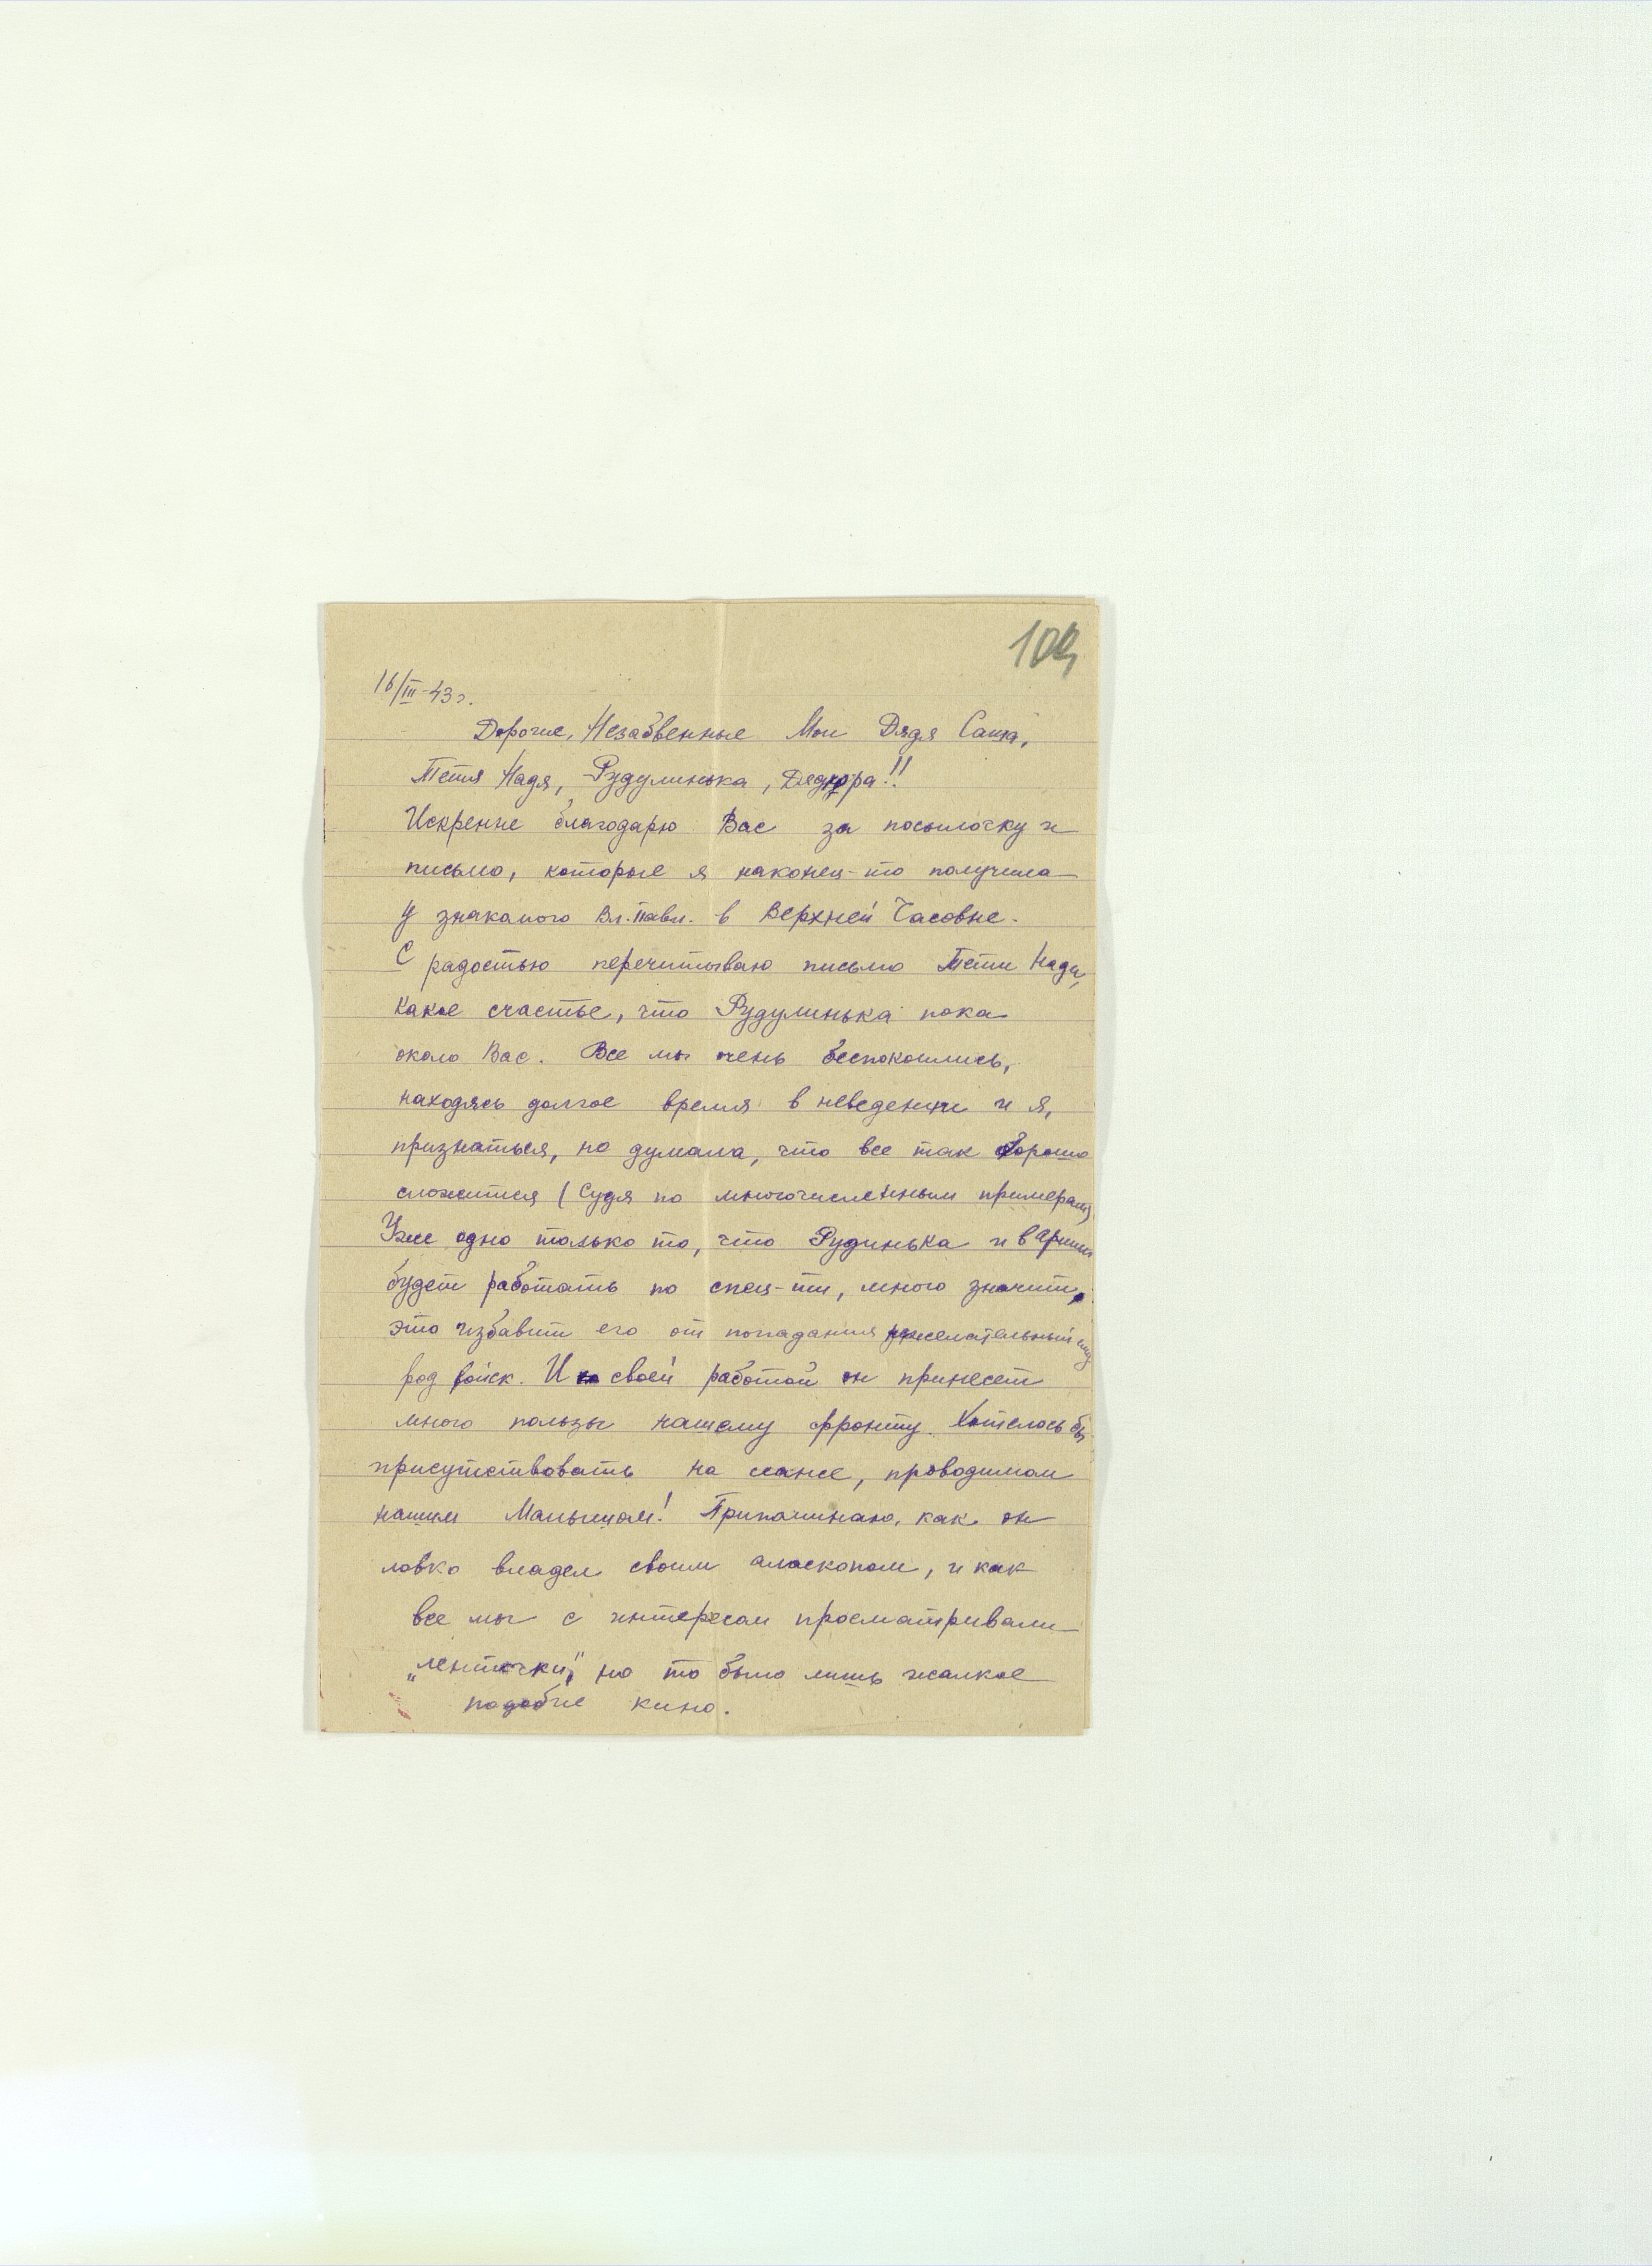 109
16/III-43 г.
Дорогие, Незабвенные Мои Дядя Саша,
Тетя Надя, Рудулинька, Дедюра!!
Искренне благодарю Вас за посылочку и
письмо, которые я наконец-то получила
у знакомого Вл. Павл. в Верхней Часовне.
С радостью перечитываю письмо Тети Нади,
какое счастье, что Рудулинька пока
около Вас. Все мы очень беспокоились,
находясь долгое время в неведении и я,
признаться, не думала, что все так хорошо
сложится (судя по многочисленным примерам)
Уже одно только то, что Рудинька и в армии
будет работать по спец-ти, много значит,
это избавит его от попадания
род войск. И своей работой он принесет
много пользы нашему фронту. Хотелось бы
присутствовать на сеансе, проводимом
нашим Малышом! Припоминаю, как он
ловко владел своим алоскопом, и как
все мы с интересом просматривали
„ленточки", но то было лишь жалкое
подобие кино.